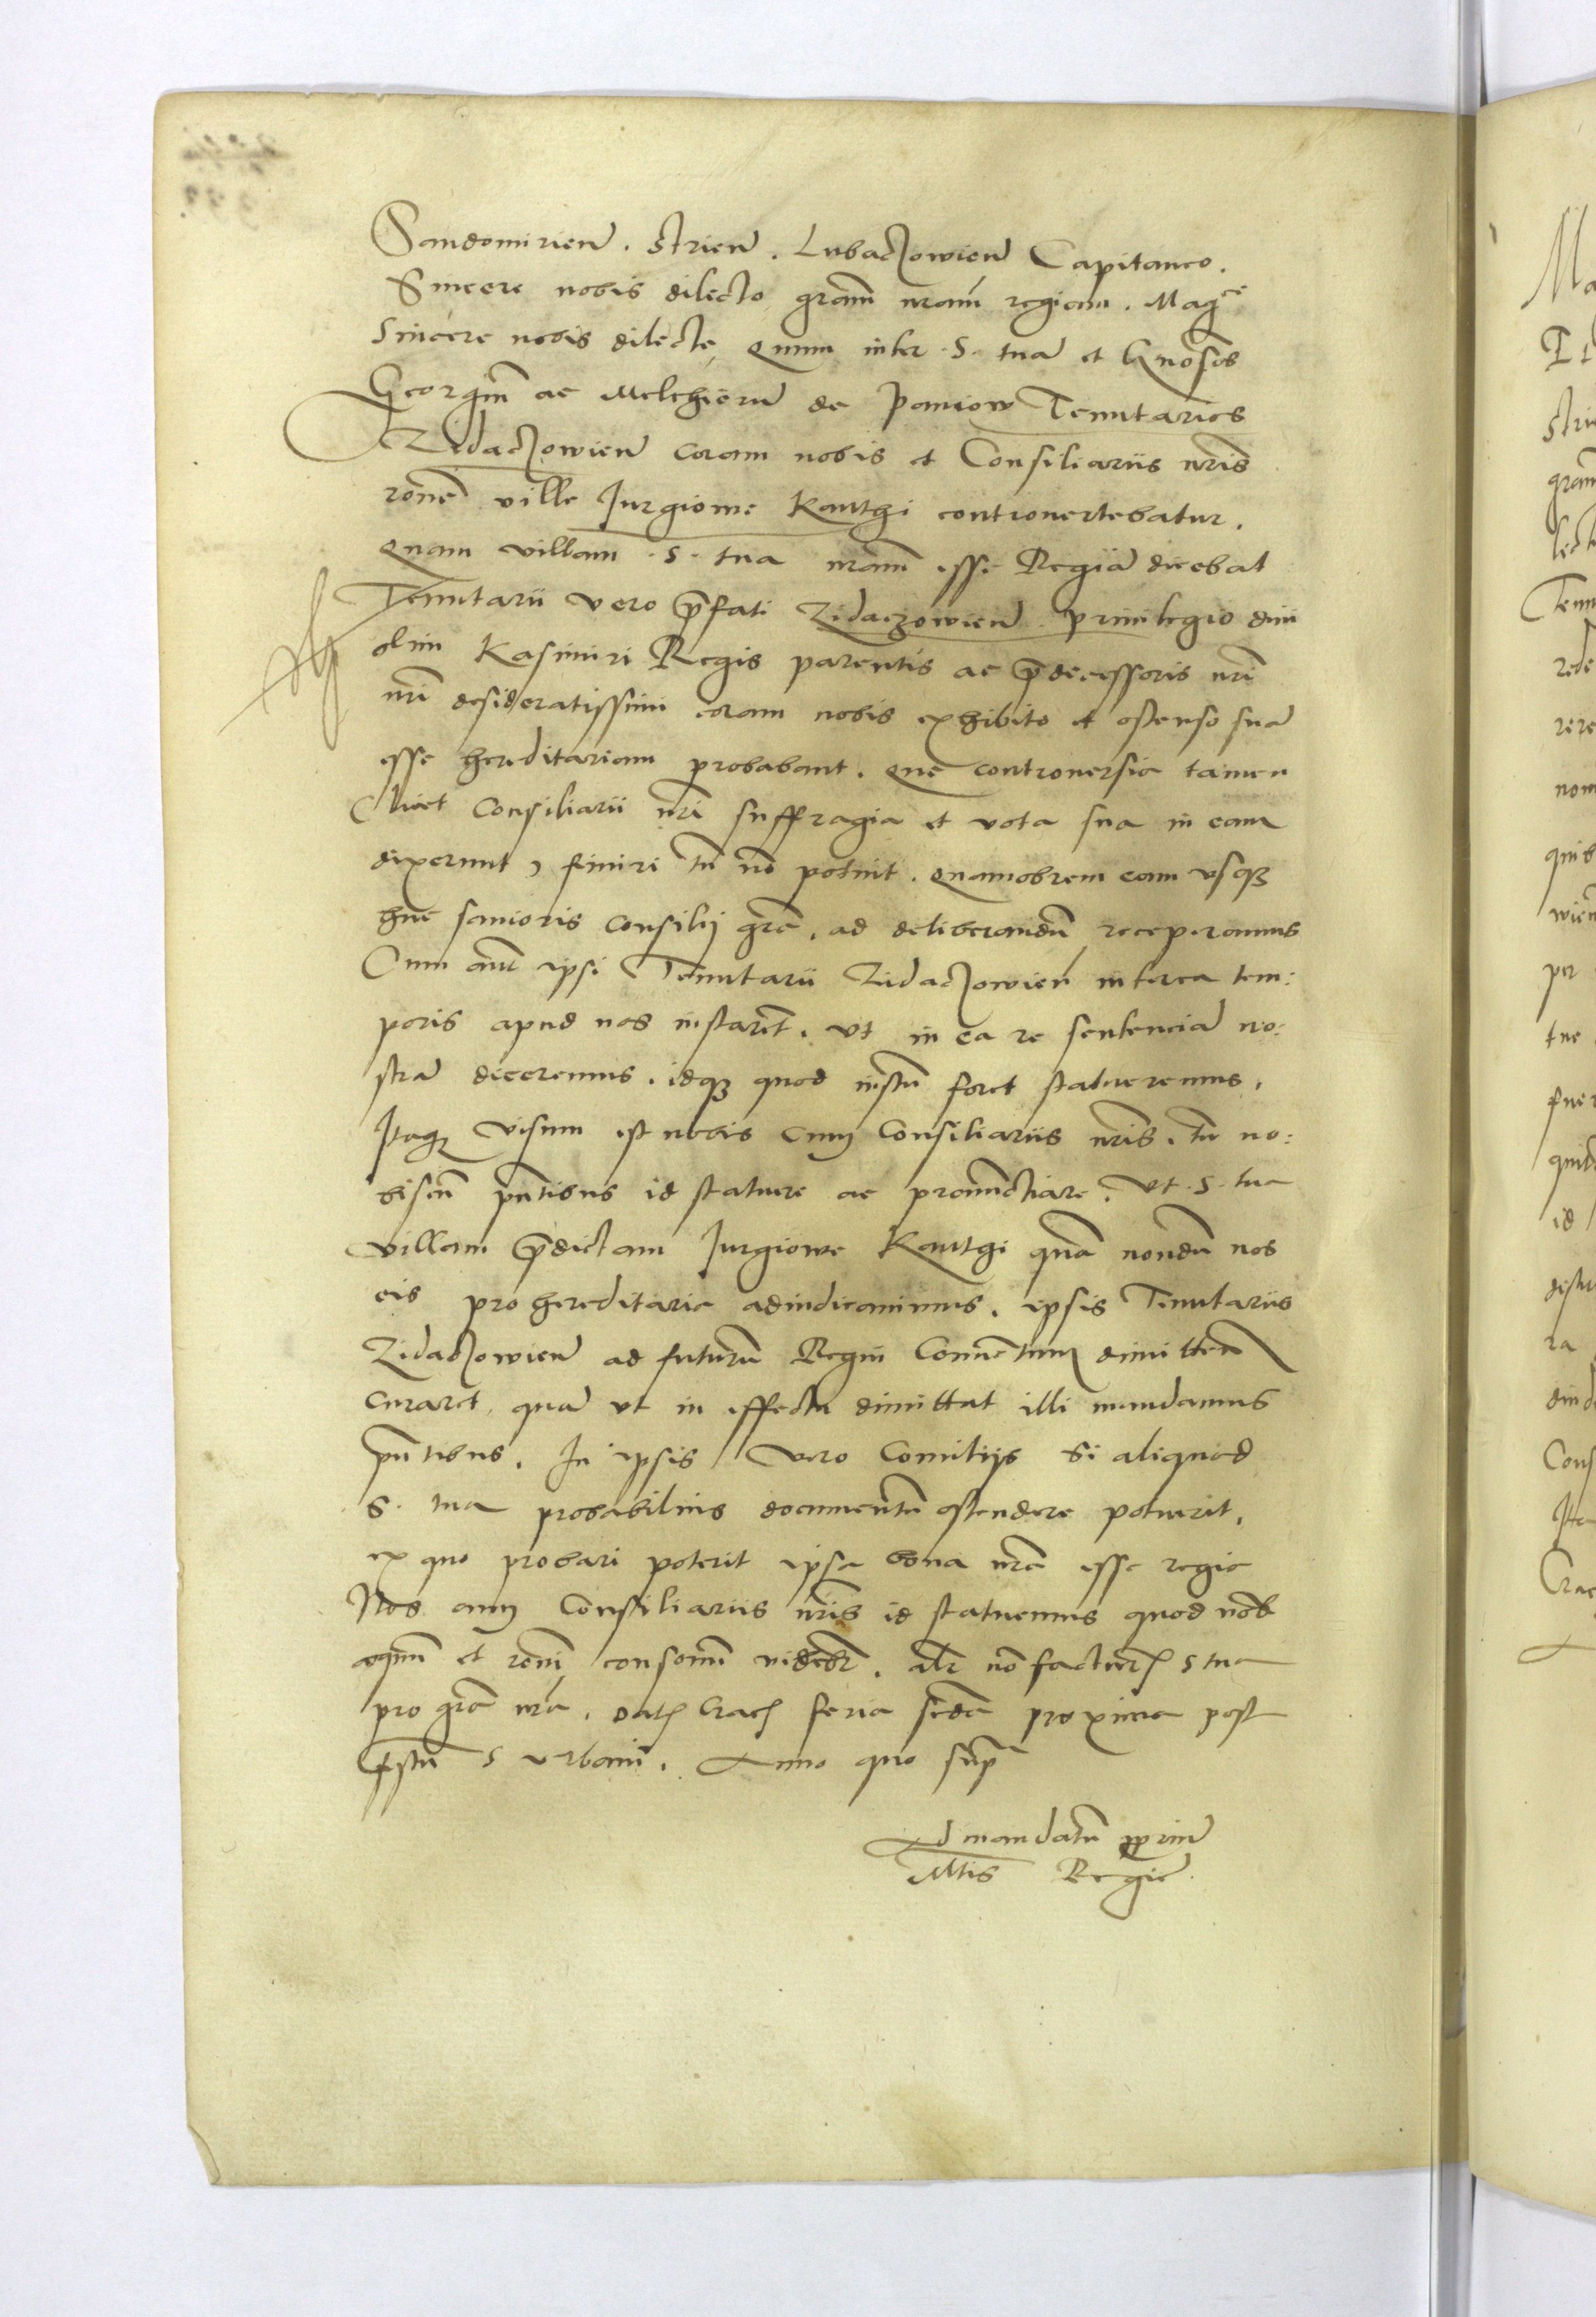 Sandomirien̄. Strien̄. Lubaczowien̄ Capitaneo.
Sincere nobis dilecto grām nrām regiam. Magce
Sincere nobis dilecte, Quum inter S. tuā et Gnosos
Georgiū ac Melchiorē de Paniow Tenutarios
Zidaczowien̄ coram nobis et Consiliariis nr̄is
rōne ville Jurgiowe Kanthi controuertebatur.
Quam villam S. tua nrām esse Regiā dicebat
Tenutarii vero p̄fati Zidaczowien̄ priuilegio diui
olim Kasimiri Regis parentis ac p̄decessoris nr̄i
nr̄i desideratissimi coram nobis exhibito et ostenso suā
esse hereditariam probabant. que controuersia tamen
licet Consiliarii nr̄i suffragia et vota sua in eam
dixerunt, finiri tn̄ nō potuit. Quamobrem eam vsq3
huc sanioris consilij grā, ad deliberandū receperamus
Cum aut̄ ipsi Tenutarii Zidaczowien̄ interea tem:
poris apud nos instarēt. vt in ea re sentenciā no:
strā diceremus. idq3 quod iustū foret statueremus.
Itaq3 visum est nobis cum Consiliariis nr̄is. tū no:
biscū pn̄tibus id statuere ac pronūctiare. Vt S. tua
villam p̄dictam Jurgiowe Kanthi quā nondū nos
eis pro hereditaria adiudicauimus. ipsis Tenutariis
Zidaczowien̄ ad futurū Regni Conuentum dimittend̄
curaret, quā vt in effectu dimittat illi mandamus
pn̄tibus. In ipsis vero Comitijs si aliquod
S. tua probabilius documentū ostendere potuerit,
ex quo probari poterit ipsa bona nrā esse regia
Nos cum Consiliariis nr̄is id statuemus quod nob̄
equū et rōni consonū videbr̄. alr̄ nō factur̄ S tua
pro grā nrā. Dat̄ Crac̄ feria secdā proxima post
festū S Vrbani. Anno quo supr̄
Ad mandatū ppriū
Mtis Regie.